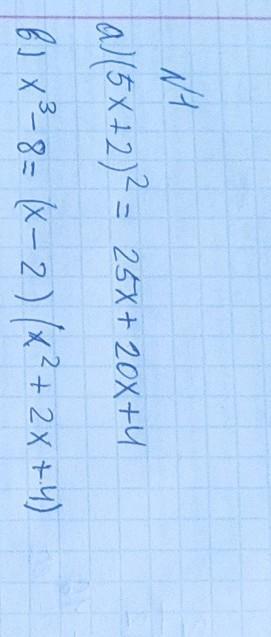 №1
а) (5x+2)² = 25x + 20x + 4
в) x³ - 8 = (x - 2)(x² + 2x + 4)